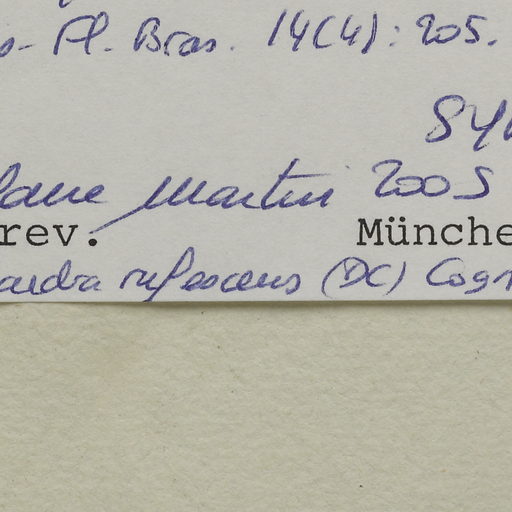 s - Fl. Bras. 14(4): 205.
SYN
Martin 2005
rev. Münche
andra rufescens (DC) Cogn